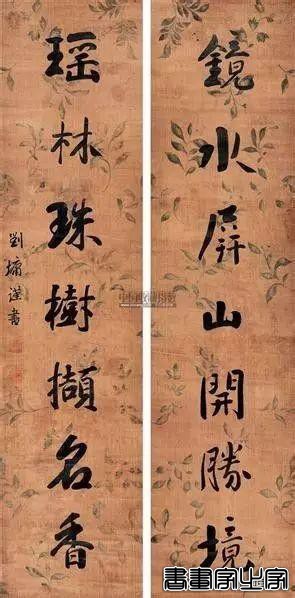 鏡水屏山開勝境
瑶林珠樹擷名香
劉墉謹書
書畫家必字